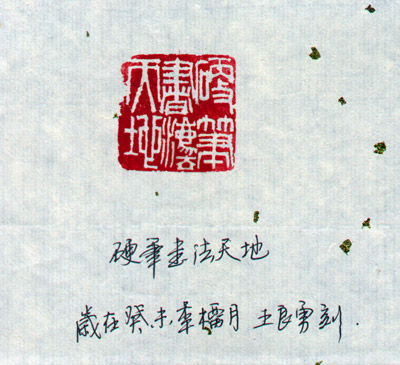 硬筆
書灋
天地
硬筆書法天地
歲在癸未年榴月 王良勇刻.